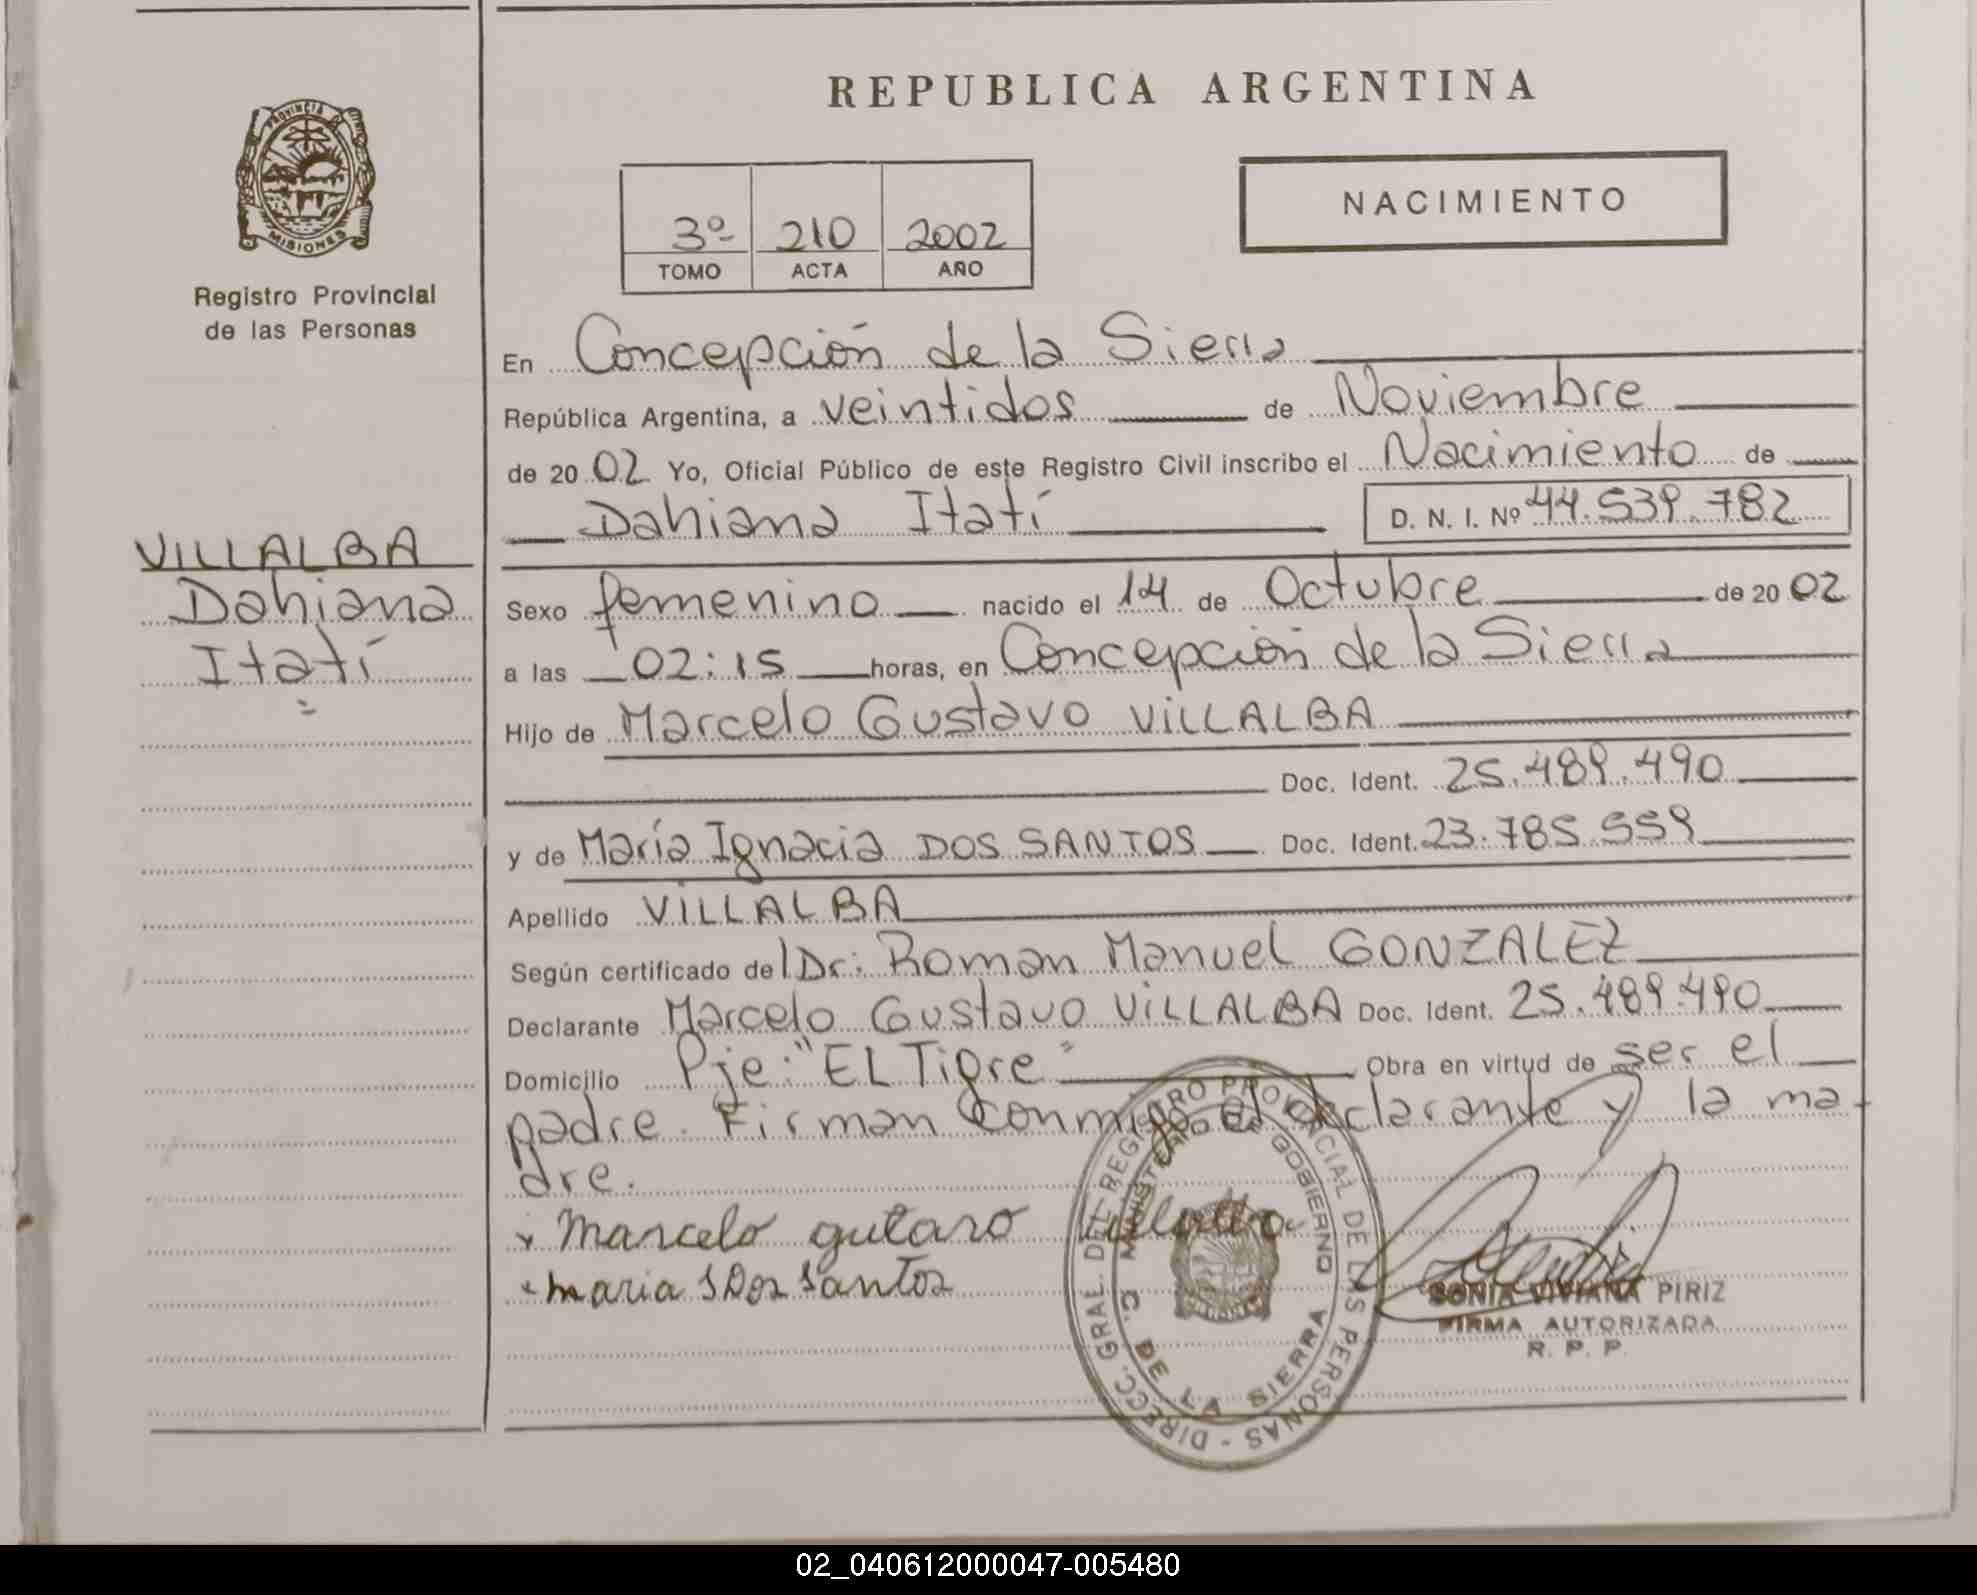 REPUBLICA ARGENTINA
PROVINCIA DE
MISIONES
Registro Provincial
de las Personas
3º 210 2002
TOMO ACTA AÑO
NACIMIENTO
En Concepción de la Sierra
República Argentina, a veintidos de Noviembre
de 2002 Yo, Oficial Público de este Registro Civil inscribo el Nacimiento de
Dahiana Itatí D. N. I. Nº 44.539.782
VILLALBA
Dahiana
Itatí
Sexo femenino nacido el 14 de Octubre de 2002
a las 02:15 horas, en Concepción de la Sierra
Hijo de Marcelo Gustavo VILLALBA
Doc. Ident. 25.489.490
y de María Ignacia DOS SANTOS Doc. Ident. 23.785.559
Apellido VILLALBA
Según certificado del Dr: Roman Manuel GONZALEZ
Declarante Marcelo Gustavo VILLALBA Doc. Ident. 25.489.490
Domicilio Pje: "EL Tigre" Obra en virtud de ser el
padre. Firman conmigo el declarante y la ma-
dre.
x Marcelo gutaro
x maria I Dos Santos
DIRECC. GRAL. DEL REGISTRO PROVINCIAL DE LAS PERSONAS -
MINISTERIO DE GOBIERNO
C. DE LA SIERRA
SONIA VIVIANA PIRIZ
FIRMA AUTORIZADA
R. P. P.
02_040612000047-005480